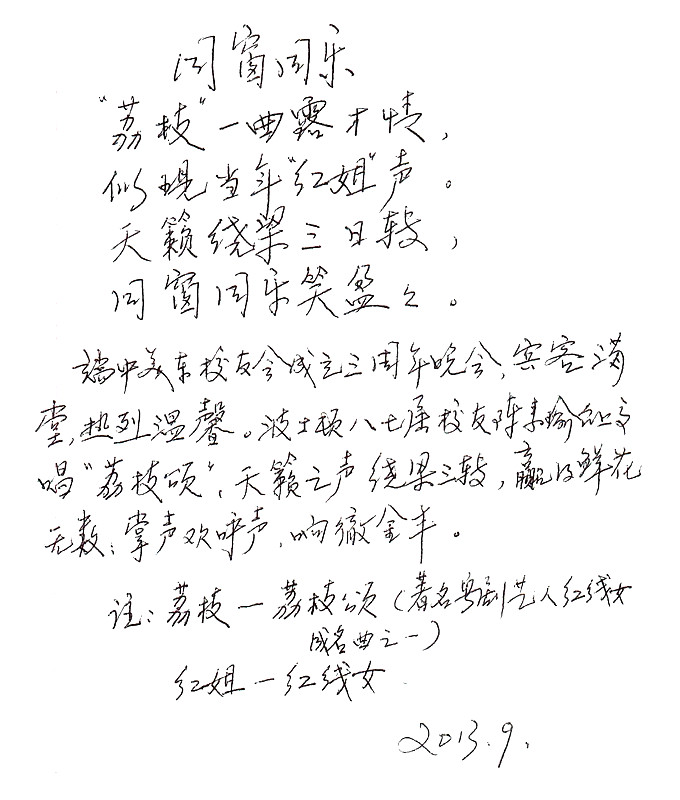 同窗同乐
“荔枝”一曲露才情，
似现当年“红姐”声。
天籁绕梁三日转，
同窗同乐笑盈々。
端中美东校友会成立三周年晚会，宾客满
堂，热列温馨。波士顿八七届校友陈素瑜
唱“荔枝颂”，天籁之声绕梁三转，赢得鲜花
无数；掌声欢呼声，响彻金丰。
注：荔枝—荔枝颂（著名粤剧艺人红线女
成名曲之一）
红姐—红线女
2013.9.